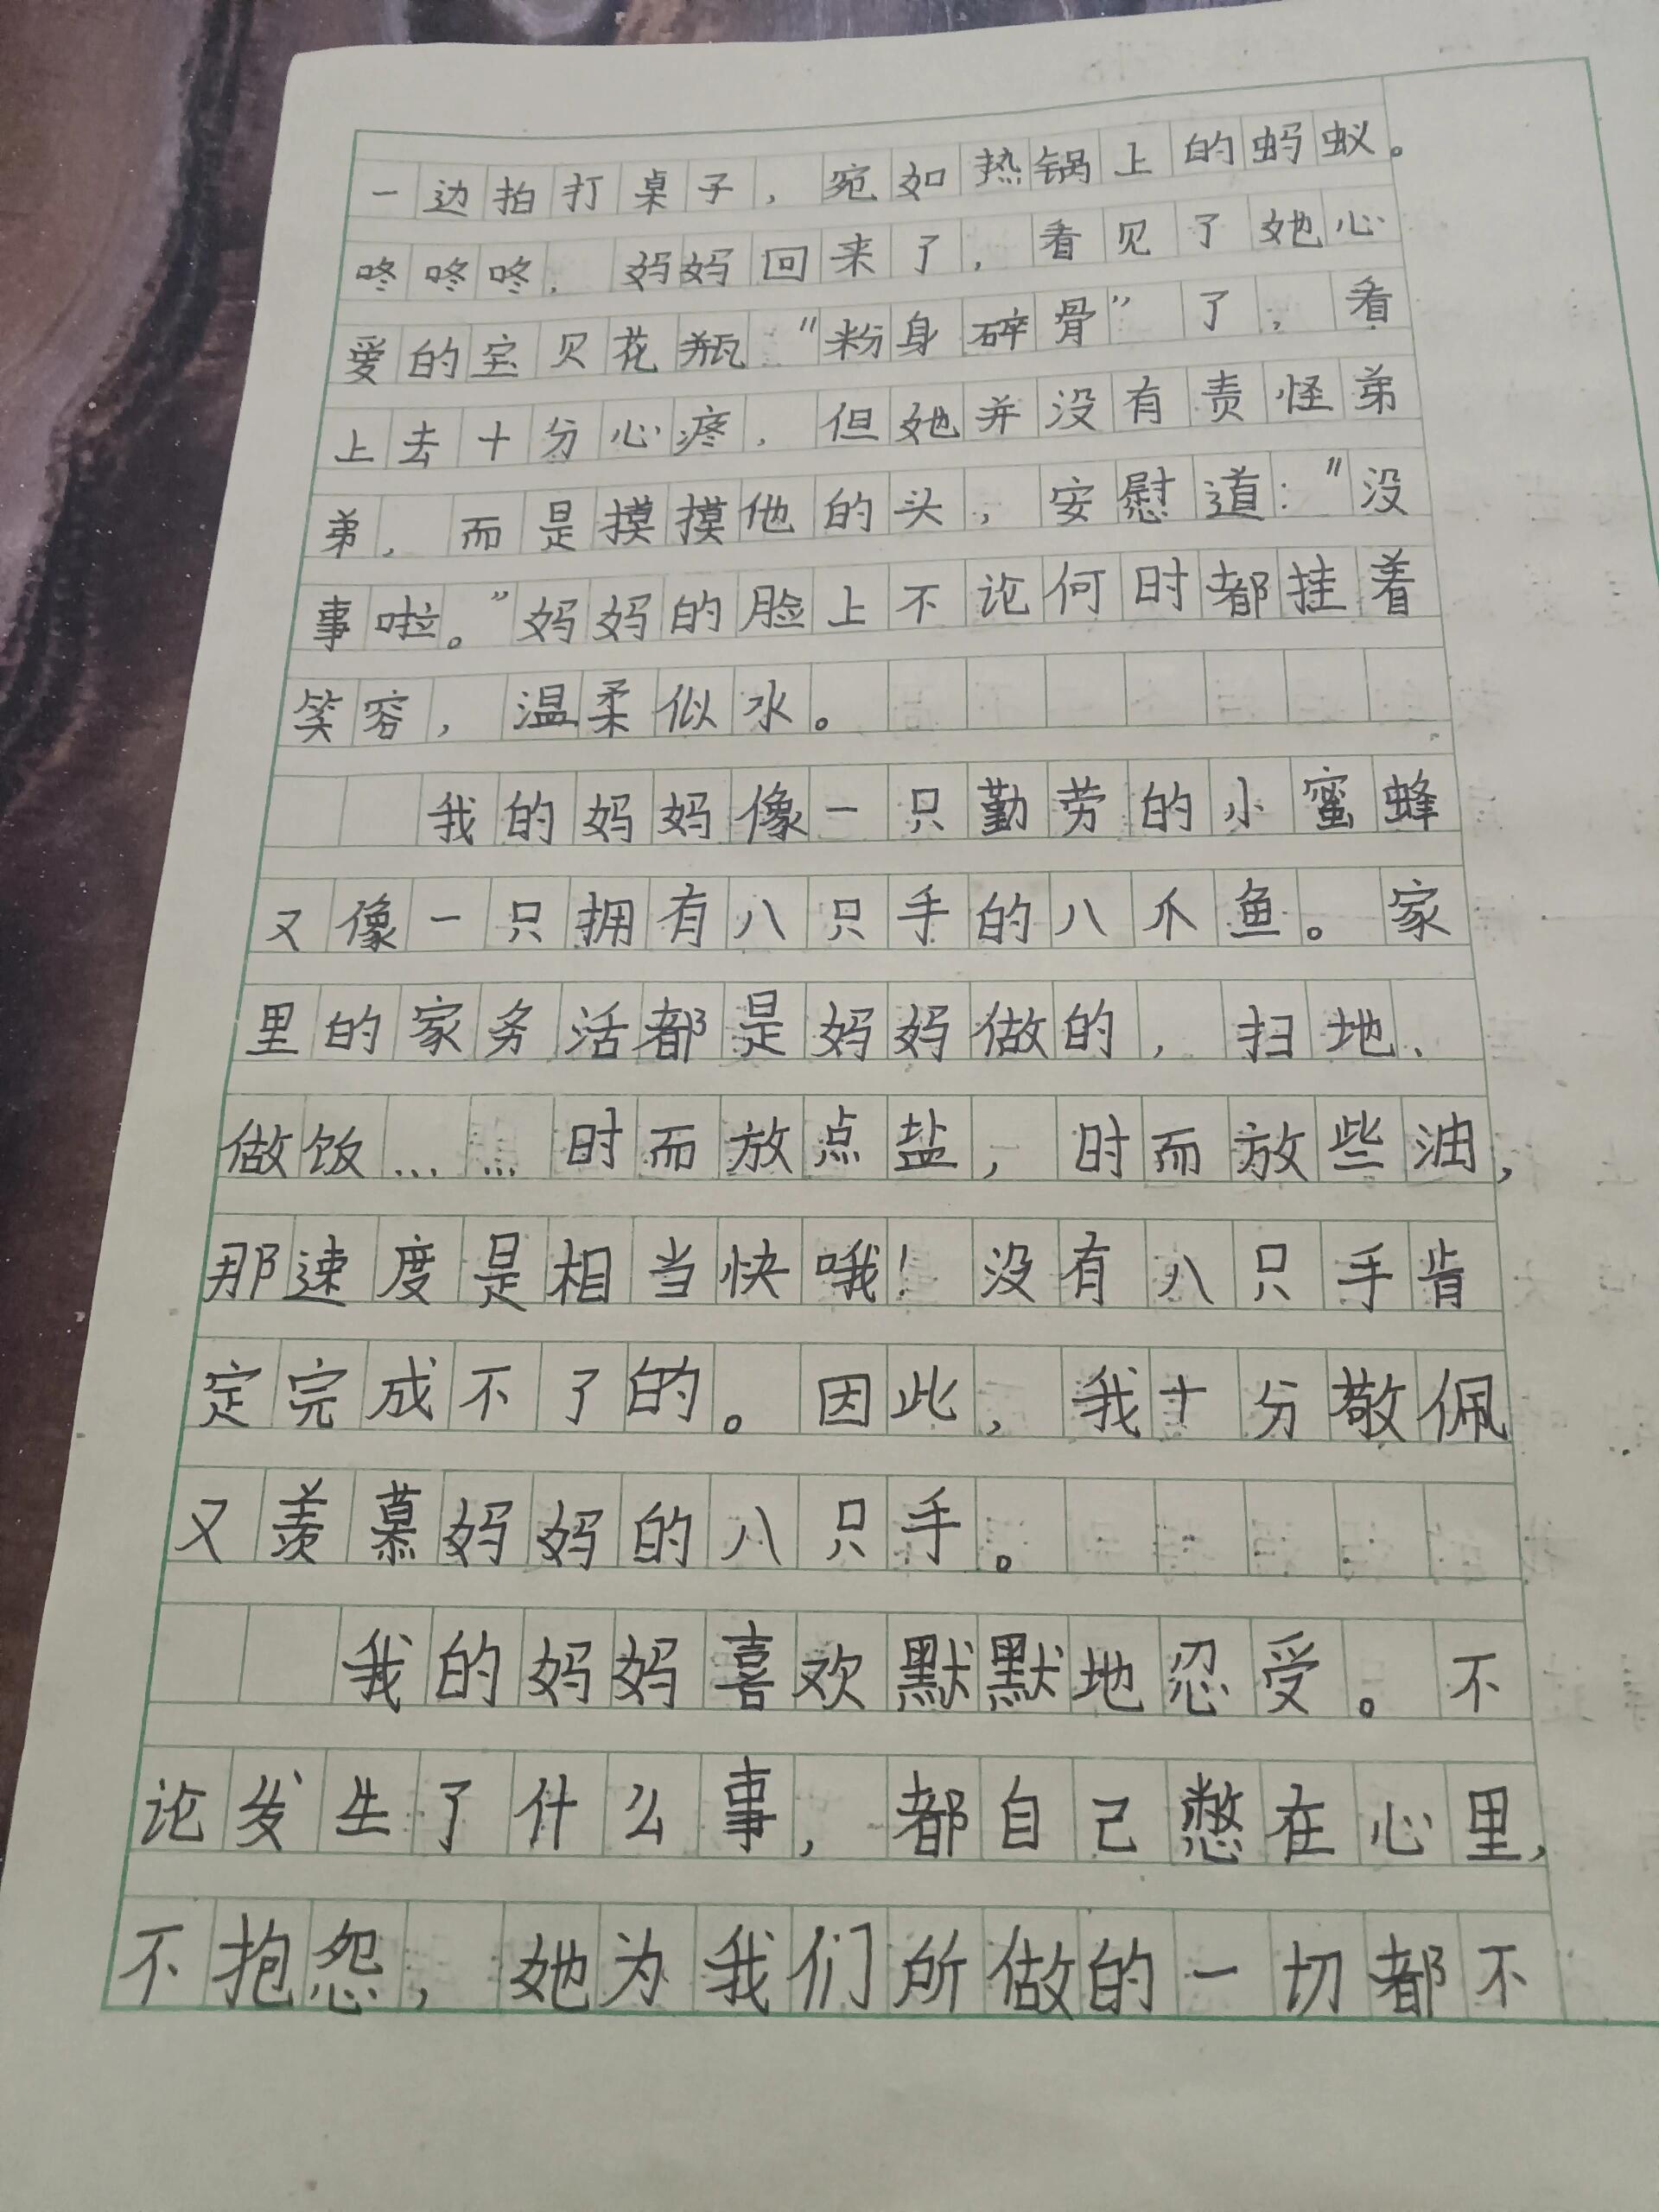 一边拍打桌子，宛如热锅上的蚂蚁。
咚咚咚，妈妈回来了，看见了她心
爱的宝贝花瓶“粉身碎骨”了，看
上去十分心疼，但她并没有责怪弟
弟，而是摸摸他的头，安慰道：“没
事啦。”妈妈的脸上不论何时都挂着
笑容，温柔似水。
我的妈妈像一只勤劳的小蜜蜂
又像一只拥有八只手的八爪鱼。家
里的家务活都是妈妈做的，扫地、
做饭……时而放点盐，时而放些油，
那速度是相当快哦！没有八只手肯
定完成不了的。因此，我十分敬佩
又羡慕妈妈的八只手。
我的妈妈喜欢默默地忍受。不
论发生了什么事，都自己憋在心里，
不抱怨，她为我们所做的一切都不